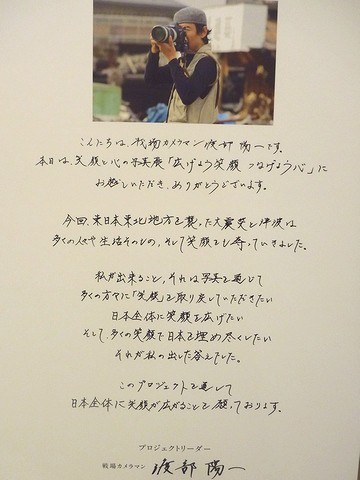 こんにちは、戦場カメラマン渡部陽一です。
本日は、笑顔と心の写真展「広げよう笑顔 つなげよう心」に
お越しいただき、ありがとうございます。
今回、東日本東北地方を襲った大震災と津波は
多くの人々や生活そのもの、そして笑顔をも奪っていきました。
私が出来ること、それは写真を通して
多くの方々に「笑顔」を取り戻していただきたい
日本全体に笑顔を広げたい
そして、多くの笑顔で日本を埋め尽くしたい
それが私の出した答えでした。
このプロジェクトを通して
日本全体に笑顔が広がることを願っております。
プロジェクトリーダー
戦場カメラマン 渡部陽一